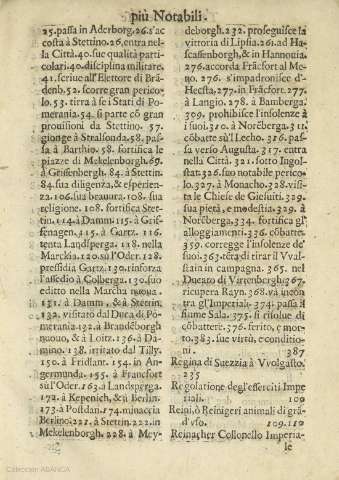 più Notabili.
25. passa in Aderborg. 26. s'ac
costa à Stettino. 26. entra nel-
la Città. 40. sue qualità parti-
colari. 40. disciplina militare.
41. scriue all'Elettore di Brã-
denb. 52. scorre gran perico-
lo. 53. tirra à se i Stati di Po-
merania. 54. si parte cõ gran
prouisioni da Stettino. 57.
gionge à Stralsonda. 58. pas-
sa à Barthio. 58. fortifica le
piazze di Mekelenborgh. 69.
à Grisenbergh. 84. à Stettin.
84. sua diligenza, & esperien-
za. 106. sua brauura. 108. sua
religione. 108. fortifica Stet-
tin. 114. à Damm. 115. à Grif-
fenagen. 115. à Gartz. 116.
tenta Landsperga. 118. nella
Marckia. 120. su l'Oder. 128.
presidia Gartz. 130. rinforza
l'assedio à Colberga. 130. suo
editto nella Marcha nuoua.
131. à Damm, & à Stettin.
132. visitato dal Duca di Po-
merania. 132. a Brandeborgh
nuouo, & à Loitz. 136. à Da-
mino. 138. irritato dal Tilly.
150. à Fridlant. 154. in An-
germunda. 155. à Francfort
su l'Oder. 163. à Landsperga.
172. à Kepenich, & ù Berlin.
173. à Postdan. 174. minaccia
Berlino. 221. à Stettin. 222. in
Mekelenborgh. 228. à Mey-
deborgh. 232. proseguisce la
vittoria di Lipsia. 261. ad Ha-
scassenborgh, & in Hannouia.
276. accorda Frãcfort al Me-
no. 276. s'impadronisce d'-
Hecsta. 277. in Frãcfort. 277.
à Langio. 278. à Bamberga.
309. prohibisce l'insolenze à
i suoi. 310. à Norẽberga. 311.
cõbatte sù l'Lecho. 316. pas-
sa verso Augusta. 317. entra
nella Città. 321. sotto Ingol-
stat. 326. suo notabile perico-
lo. 327. à Monacho. 328. visi-
ta le Chiese de Giesuiti. 329.
sua pietà, e modestia. 329. à
Norẽberga. 334. fortifica gl'
alloggiamẽti. 336. cõbatte.
359. corregge l'insolenze de'
suoi. 363. terta di tirar il Vval-
stain in campagna. 365. nel
Ducato di Virtenbergh. 367.
ricupera Rayn. 368. và incon
tra gl'Imperiali. 374. passa il
fiume Sala. 375. si risolue di
cõbattere. 376. ferito, e mor-
to. 383. sue virtù, e conditio-
ni. 387
Regina di Suezzia à Vvolgasto.
235
Regolatione degl'esserciti Impe
riali. 100
Reini, ò Reinigeri animali di grã-
d'vso. 109. 110
Reinacher Collonello Imperia-
le
Colección ABANCA